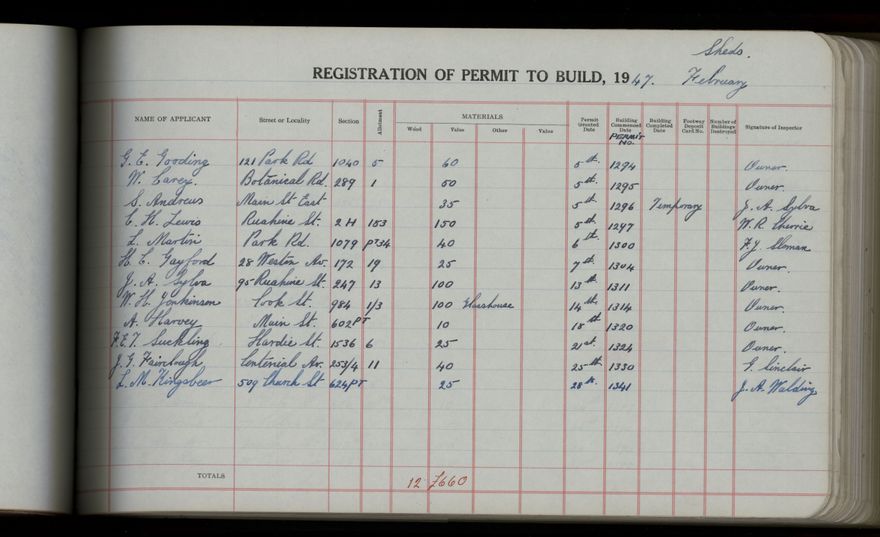 Sheds.
REGISTRATION OF PERMIT TO BUILD, 1947. February
NAME OF APPLICANT Street or Locality Section Allotment MATERIALS Wood Value Other Value Permit Granted Date Building Commenced Date PERMIT NO. Building Completed Date Footway Deposit Card No. Number of Buildings Destroyed Signature of Inspector
G. E. Gooding 121 Park Rd 1040 5 60 5th. 1294 Owner.
W. Carey. Botanical Rd. 289 1 50 5th. 1295 Owner.
S. Andrews Main St East 35 5th. 1296 Temporary J. A. Sylva
C. H. Lewis Ruahine St. 2H 153 150 5th. 1297 W. R.
L. Martin Park Rd. 1079 PT34 40 6th. 1300 F. J.
H. C. Gayford 28 Weston Av. 172 19 25 7th. 1304 Owner.
J. A. Sylva 95 Ruahine St. 247 13 100 13th 1311 Owner.
W. H. Jenkinson Cook St. 984 1/3 100 Glasshouse 14th. 1314 Owner.
A. Harvey Main St. 602PT 10 18th 1320 Owner.
F. E. T. Suckling Hardie St. 1536 6 25 21st. 1324 Owner.
J. G. Fairebragh Centenial Av. 253/4 11 40 25th 1330 G. Sinclair
L. M. Kingsbeer 509 Church St 624PT 25 28th. 1341 J. A. Walding
TOTALS 12 £660